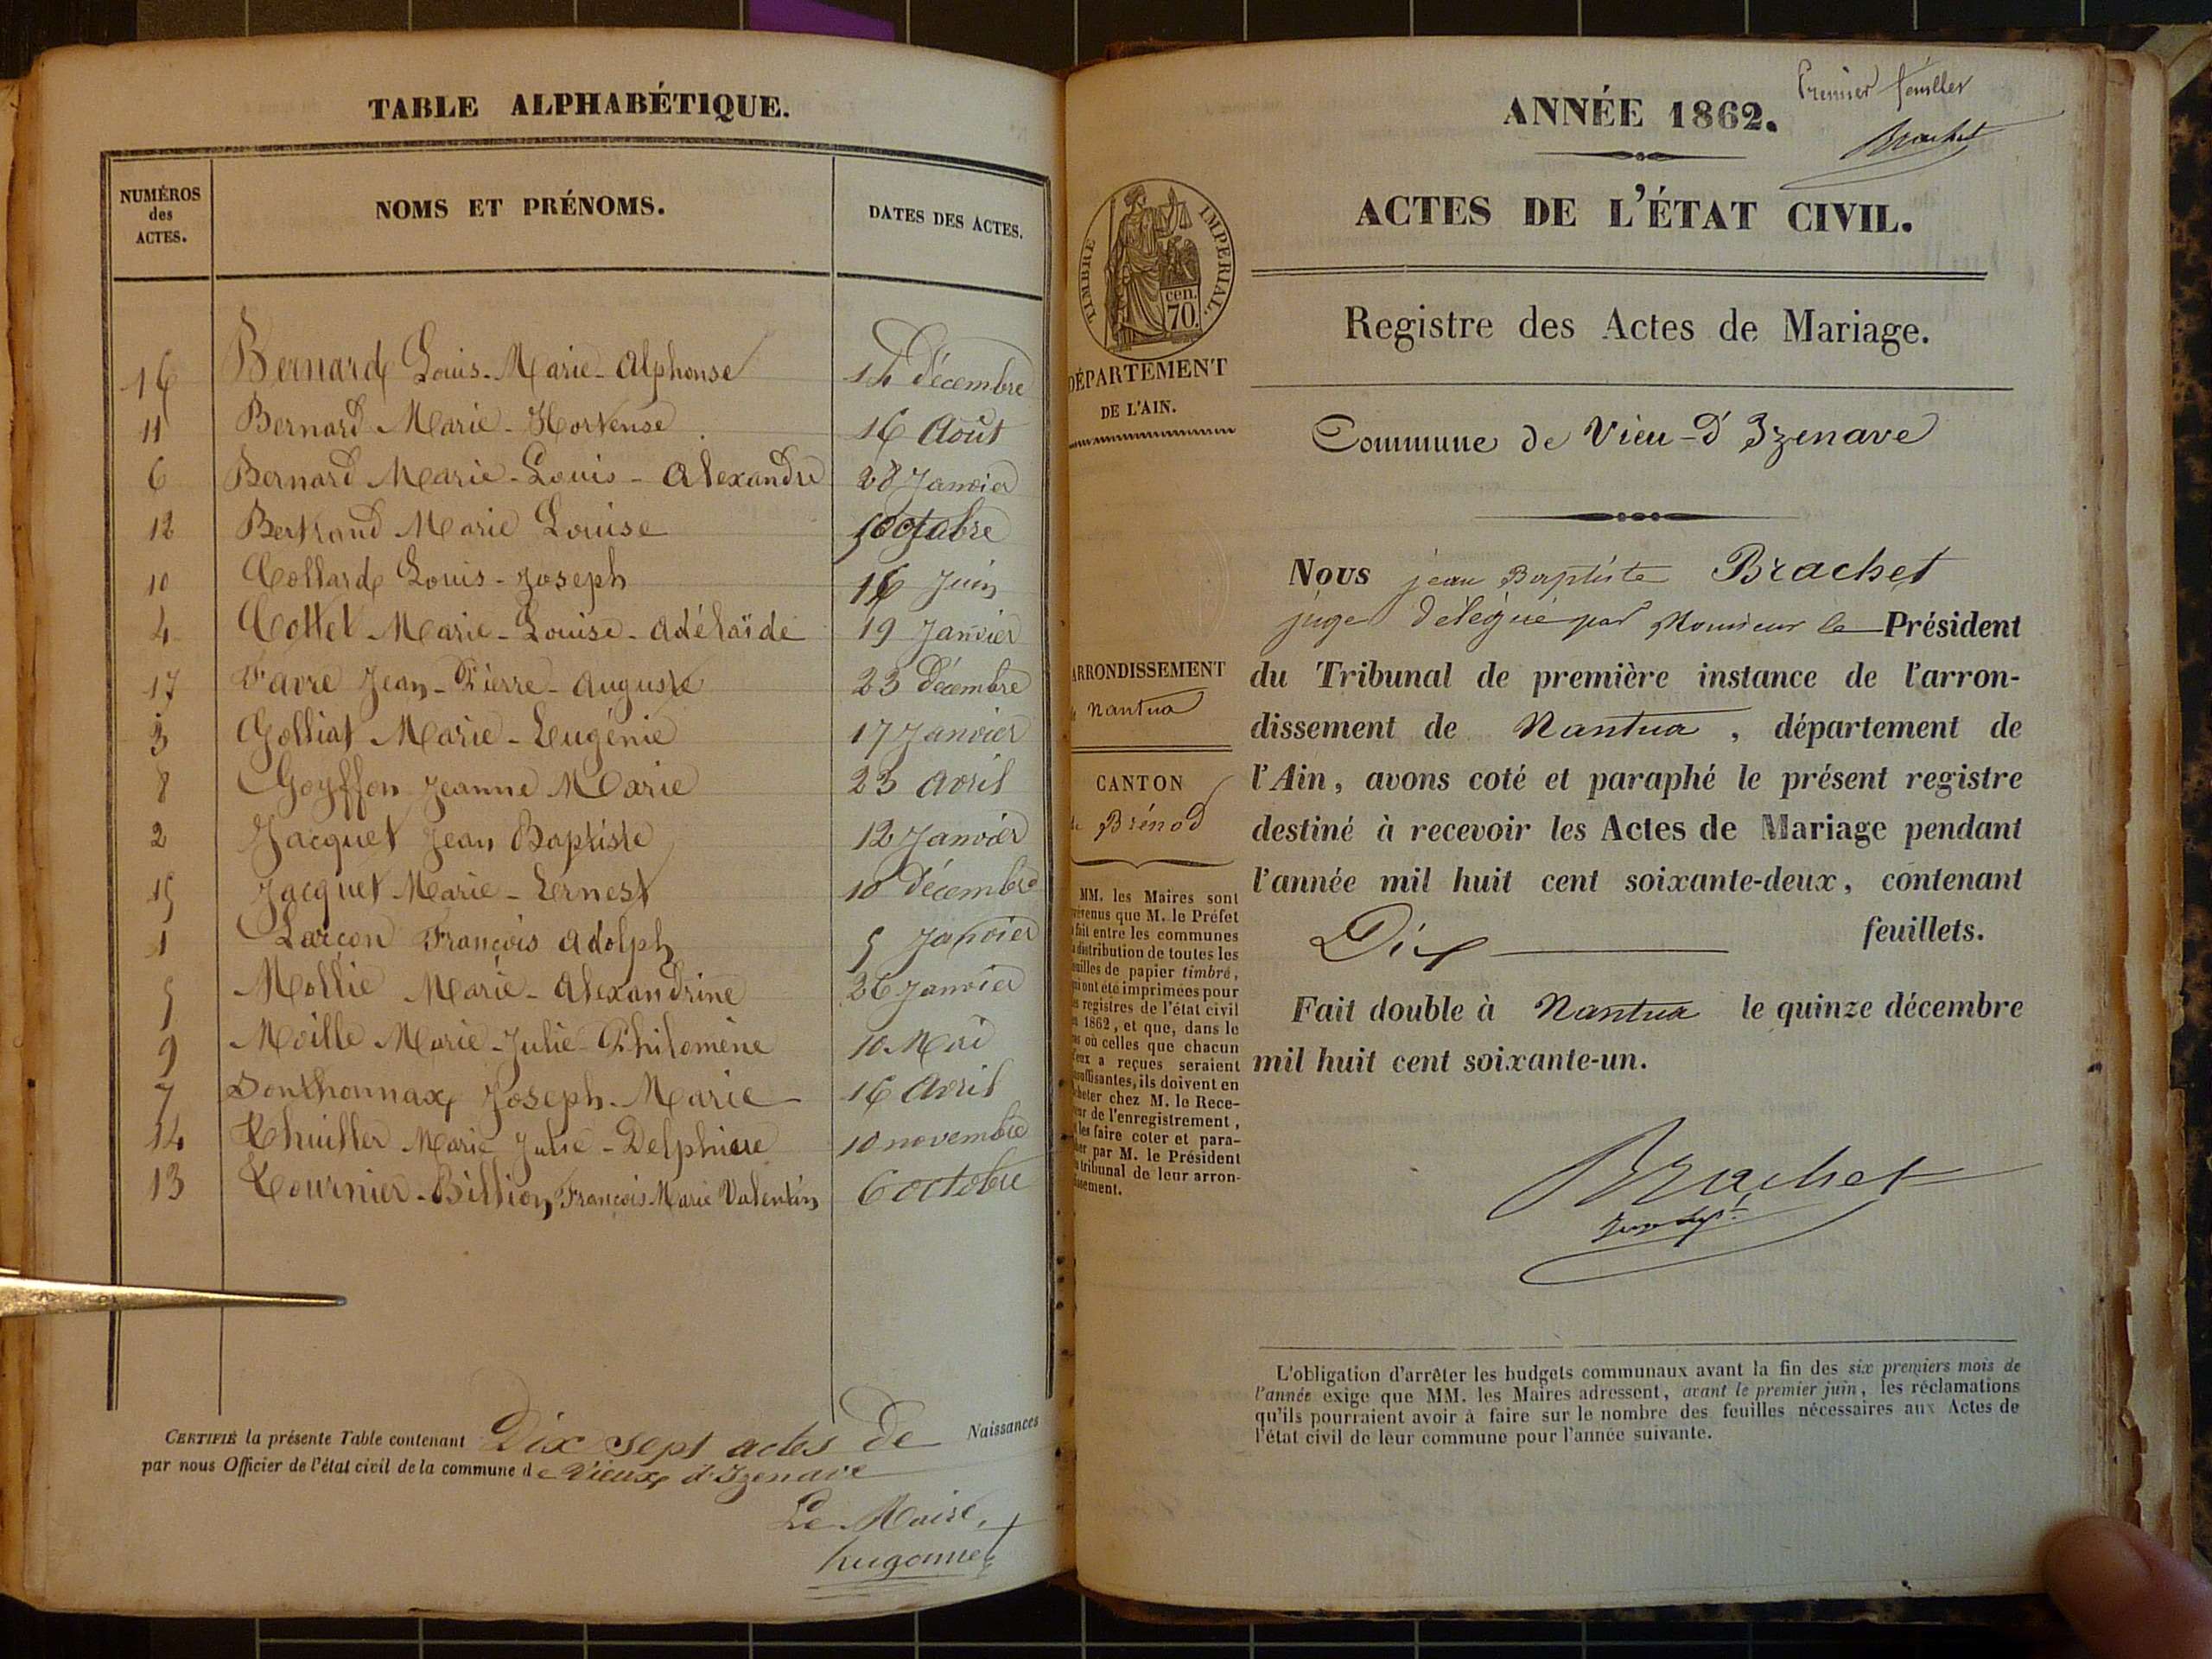 TABLE ALPHABÉTIQUE.
NUMÉROS des ACTES. NOMS ET PRÉNOMS. DATES DES ACTES.
16 Bernard Louis-Marie-Alphonse 14 décembre
11 Bernard Marie-Hortense 16 Août
6 Bernard Marie-Louis-Alexandre 28 Janvier
12 Bertrand Marie Louise octobre
10 Collard Louis-Joseph 16 Juin
4 Cottet Marie-Louise-Adélaïde 19 Janvier
17 Favre Jean-Pierre-Auguste 23 décembre
3 Golliat Marie-Eugénie 17 Janvier
8 Goyffon Jeanne Marie 23 Avril
2 Jacquet Jean Baptiste 12 Janvier
15 Jacquet Marie-Ernest 10 décembre
1 Larçon François Adolph 5 Janvier
5 Mollie Marie-Alexandrine 26 Janvier
9 Moille Marie-Julie-Philomène 10 Mai
7 Sonthonnax Joseph-Marie 16 Avril
14 Thuiller Marie Julie-Delphine 10 novembre
13 Tournier-Billion François Marie Valentin 6 octobre
CERTIFIÉ la présente Table contenant Dix sept actes de Naissances
par nous Officier de l'état civil de la commune de Vieux d'Izenave
Le Maire,
hugonnet
Premier feuillet
Brachet
ANNÉE 1862.
ACTES DE L'ÉTAT CIVIL.
TIMBRE IMPÉRIAL.
cen.
70.
DÉPARTEMENT
DE L'AIN.
Registre des Actes de Mariage.
Commune de Vieu-d'Izenave
Nous jean Baptiste Brachet
juge délégué par Monsieur le Président
du Tribunal de première instance de l'arron-
dissement de Nantua, département de
l'Ain, avons coté et paraphé le présent registre
destiné à recevoir les Actes de Mariage pendant
l'année mil huit cent soixante-deux, contenant
Dix feuillets.
Fait double à Nantua le quinze décembre
mil huit cent soixante-un.
Brachet
ARRONDISSEMENT
Nantua
CANTON
de Brénod
MM. les Maires sont
évenus que M. le Préfet
fait entre les communes
distribution de toutes les
uilles de papier timbré,
i ont été imprimées pour
s registres de l'état civil
1862, et que, dans le
s où celles que chacun
eux a reçues seraient
suffisantes, ils doivent en
heter chez M. le Rece-
ur de l'enregistrement,
les faire coter et para-
her par M. le Président
tribunal de leur arron-
issement.
L'obligation d'arrêter les budgets communaux avant la fin des six premiers mois de
l'année exige que MM. les Maires adressent, avant le premier juin, les réclamations
qu'ils pourraient avoir à faire sur le nombre des feuilles nécessaires aux Actes de
l'état civil de leur commune pour l'année suivante.